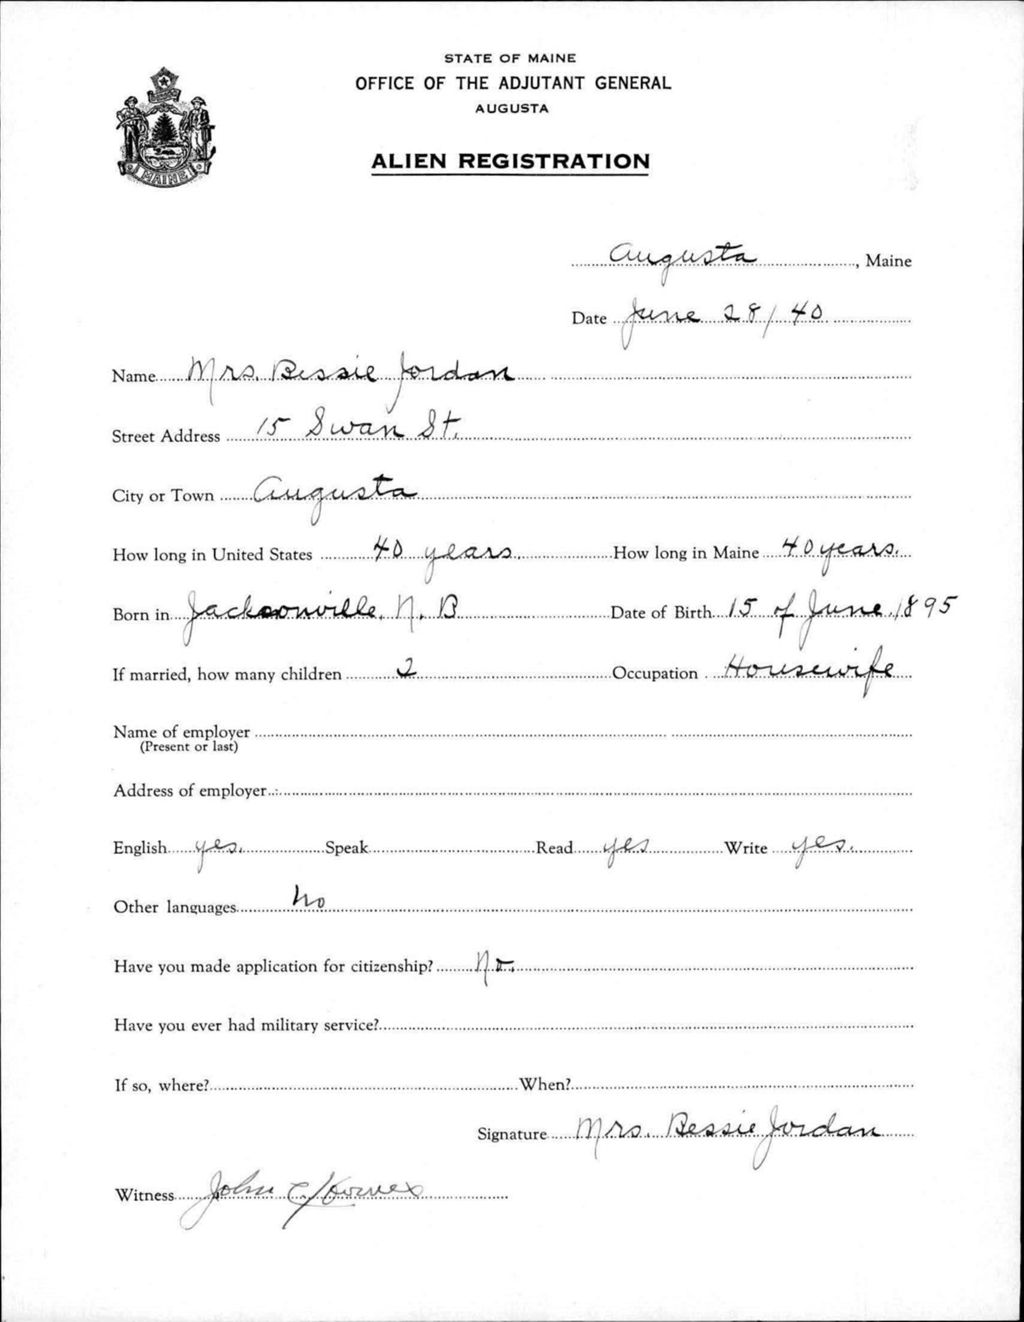 STATE OF MAINE
OFFICE OF THE ADJUTANT GENERAL
AUGUSTA
ALIEN REGISTRATION
MAINE
Augusta, Maine
Date June 28/40
Name Mrs. Bessie Jordan
Street Address 15 Swan St.
City or Town Augusta
How long in United States 40 years. How long in Maine 40 years.
Born in Jacksonville, N. B Date of Birth 15 of June 1895
If married, how many children 2 Occupation Housewife
Name of employer
(Present or last)
Address of employer
English yes. Speak Read yes Write yes.
Other languages no
Have you made application for citizenship? No.
Have you ever had military service?
If so, where? When?
Signature Mrs. Bessie Jordan
Witness John C